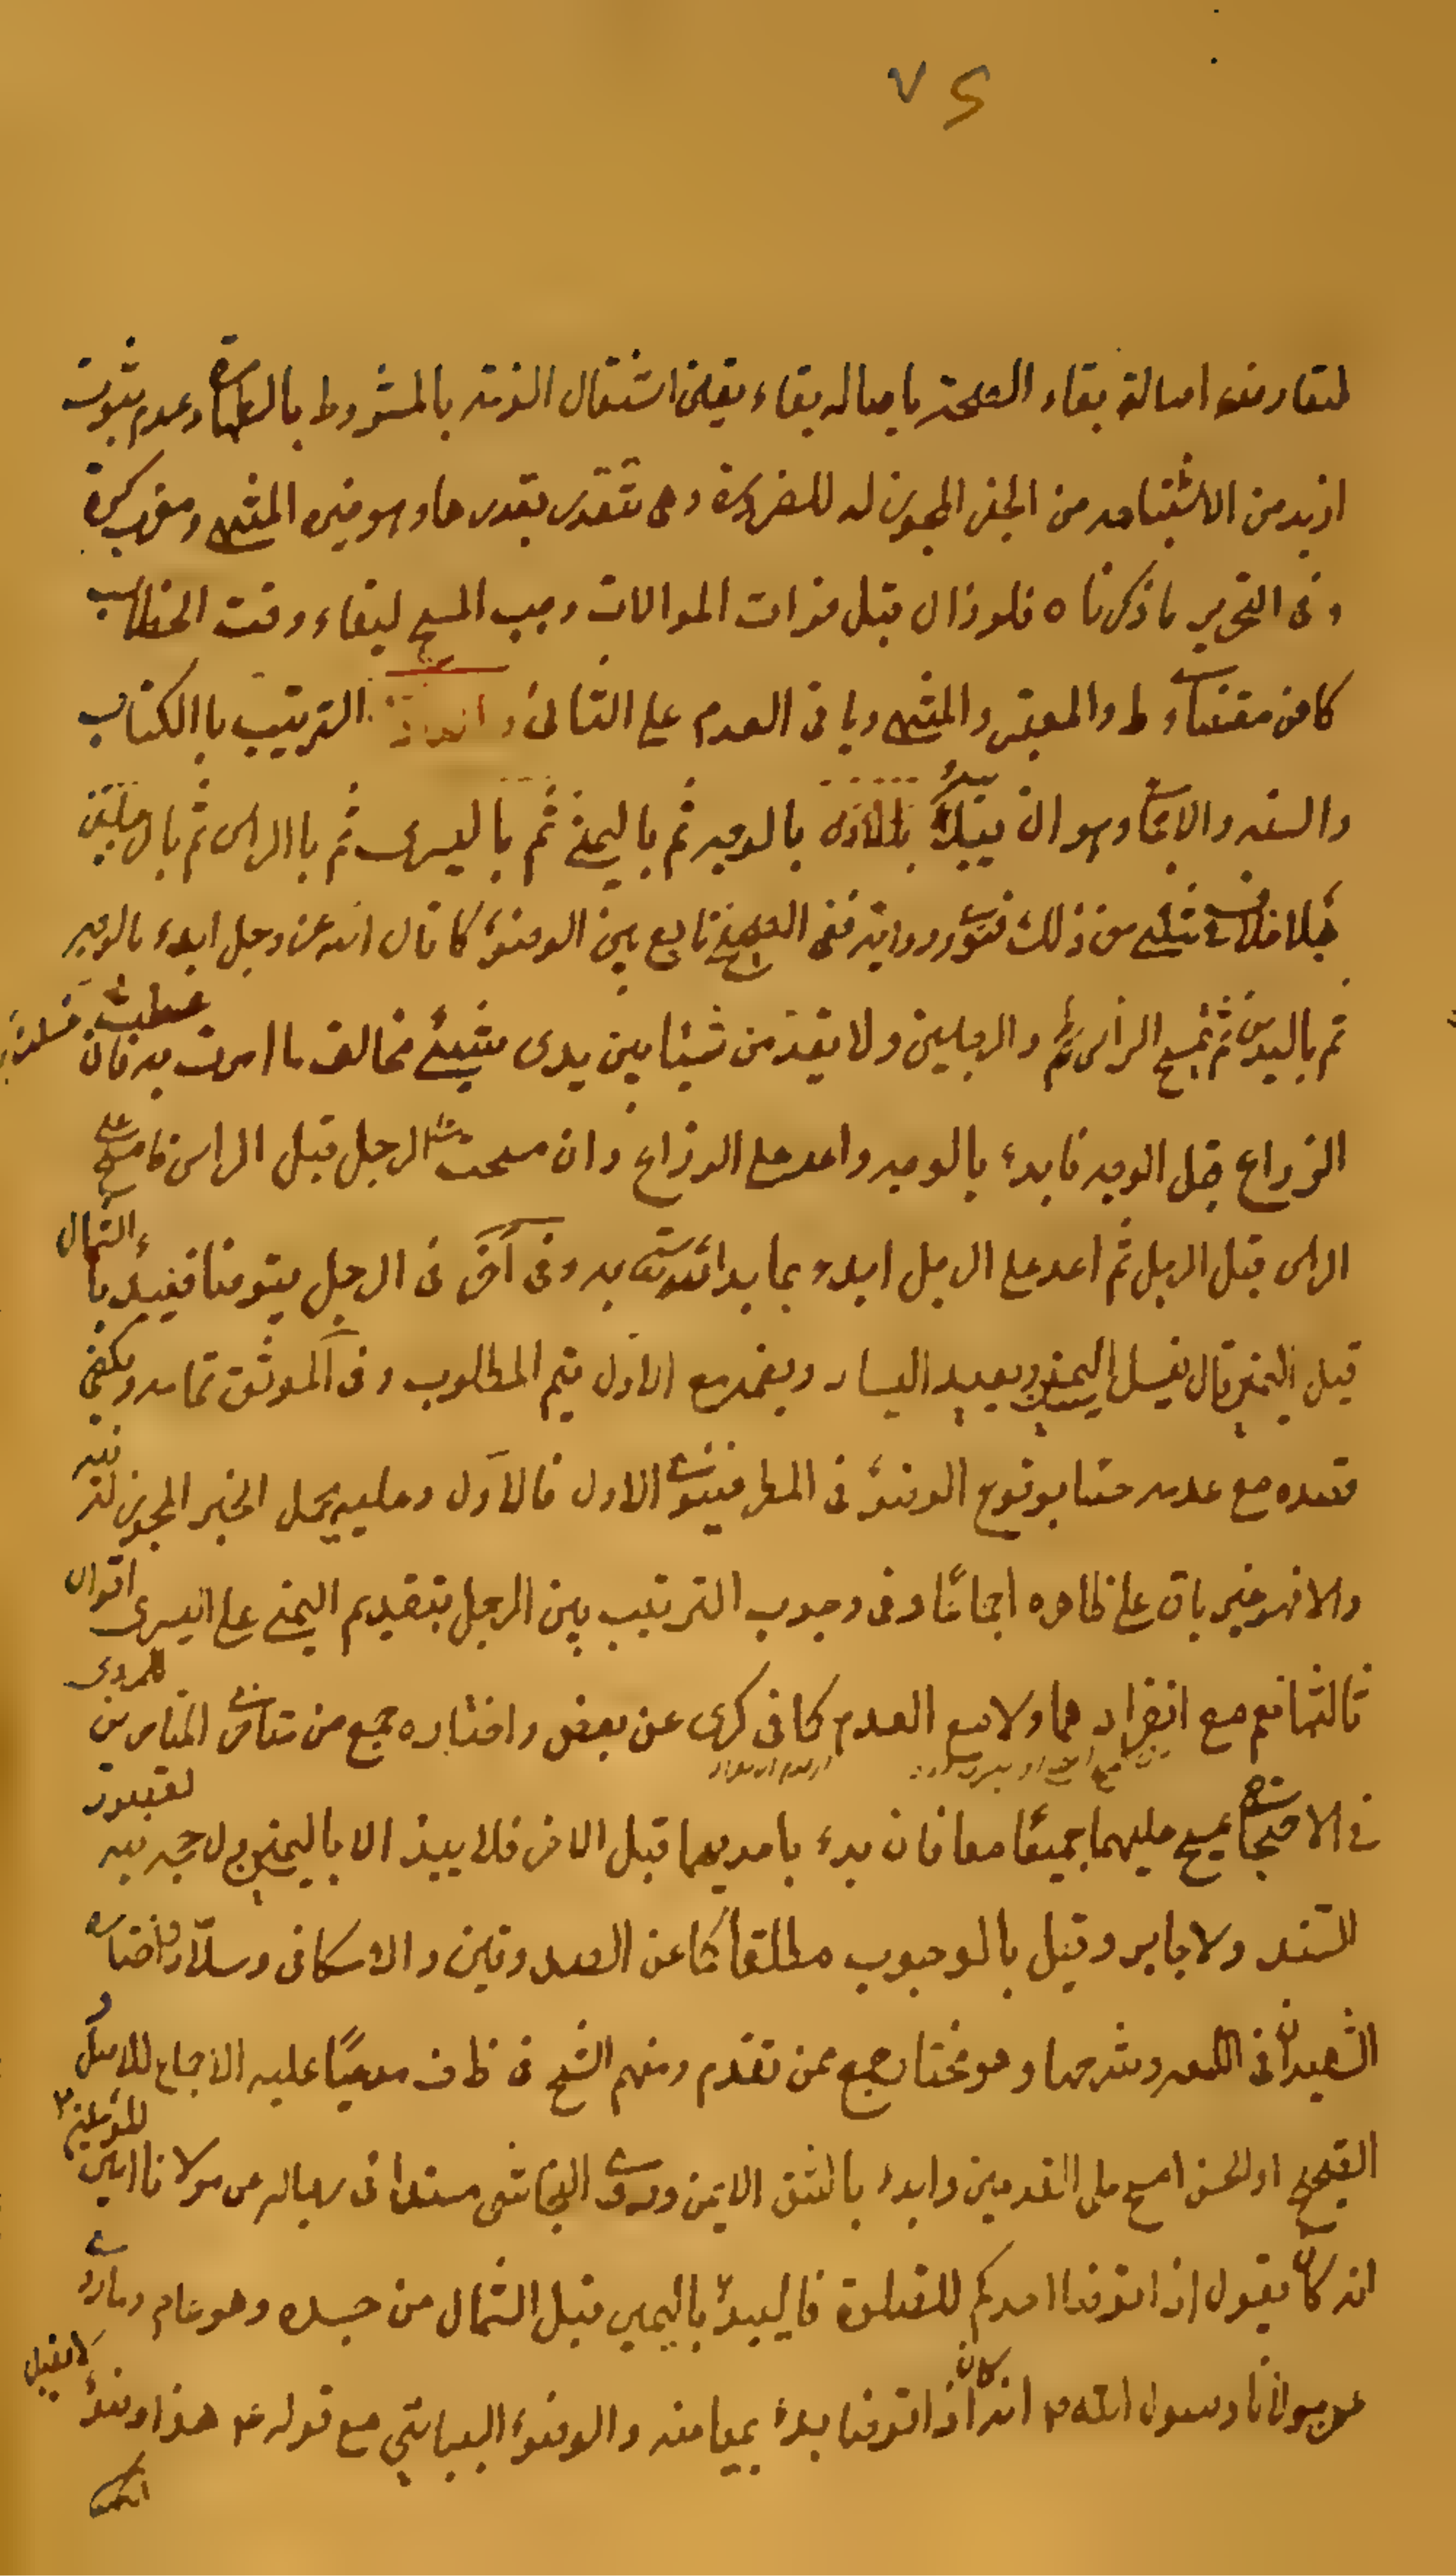 ٧٥
لتعارضه اصالة بقاء الصحة باصالة بقاء يقين اشتغال الذمة بالمشروط بالطهارة وعدم ثبوت
ازيد من الاستباحه من الخبر المجوز له للضرورة وهى تتقدر بقدرها وهو خيره المنتهى ومقرب كرة
وفى التحرير ما ذكرناه فلو زال قبل فوات الموالات وجب المسح لبقاء وقت الخطاب
كا من مقتضا وط والمعتبر والمنتهى وياتى العدم على الثانى و الترتيب باالكتاب
والسنه والاجماع وهو ان يبدء بالوجه ثم باليمنى ثم باليسرى ثم باالراس ثم بالرجلين
بلا خلاف فى شئ من ذلك فتوى ورواية ففى الصحيح تابع بين الوضوء كا قال الله عز وجل ابدء بالوجه
ثم باليدين ثم بمسح الراس والرجلين ولا يقدمن شيئا بين يدى شيئ تخالف ما امرت به فان غسلت
الذراع قبل الوجه فابدء بالوجه واعد على الذراع وان مسحت الرجل قبل الراس فامسح على
الراس قبل الرجل ثم اعد على الرجل ابدء بما بدا الله به وفى آخر فى الرجل يتوضا فيبدء بالشمال
قبل اليمين قال يغسل اليمين ويعيد اليسار وبضمه مع الاول يتم المطلوب وفى الموثق تمامه ويكفى
قصده مع عدمه حسا بوقوع الوضوء فى المطر فينوى الاول فالاول وعليه يحمل الخبر المجوز لفر
والا فهو غير باق على ظاهره اجماعا وفى وجوب الترتيب بين الرجل بتقديم اليمنى على اليسرى اقوال
ثالثها نعم مع انفرادهما ولا مع العدم كا فى كرى عن بعض واختاره جمع من متاخرى المتاخرين للمروى
فى الاحتجاج يمسح عليهما جميعا معا فان بدء باحديهما قبل الاخر فلا يبدء الا باليمين ولا حجه فيه لقصور
السند ولا جابر وقيل بالوجوب مطلقا كا عن الصدوقين والاسكافى وسلار واختاره
الشهيدان فى اللمعه وشرحها وهو مختار جمع ممن تقدم ومنهم الشيخ فى ظاف مدعيا عليه الاجماع للاصل و
الصحيح او الحسن امسح على القدمين وابدء بالشق الايمن وروى النجاشى مسندا فى رجاله عن مولانا امير المؤمنين
انه كان يقول اذا توضا احدكم للصلوة فاليبدء باليمين قبل الشمال من جسده وهو عام وما روى
عن مولانا رسول الله ص انه كان اذا توضا بدء بميامنه والوضوء البيانى مع قوله ص هذا وضوء لا يقبل
الله